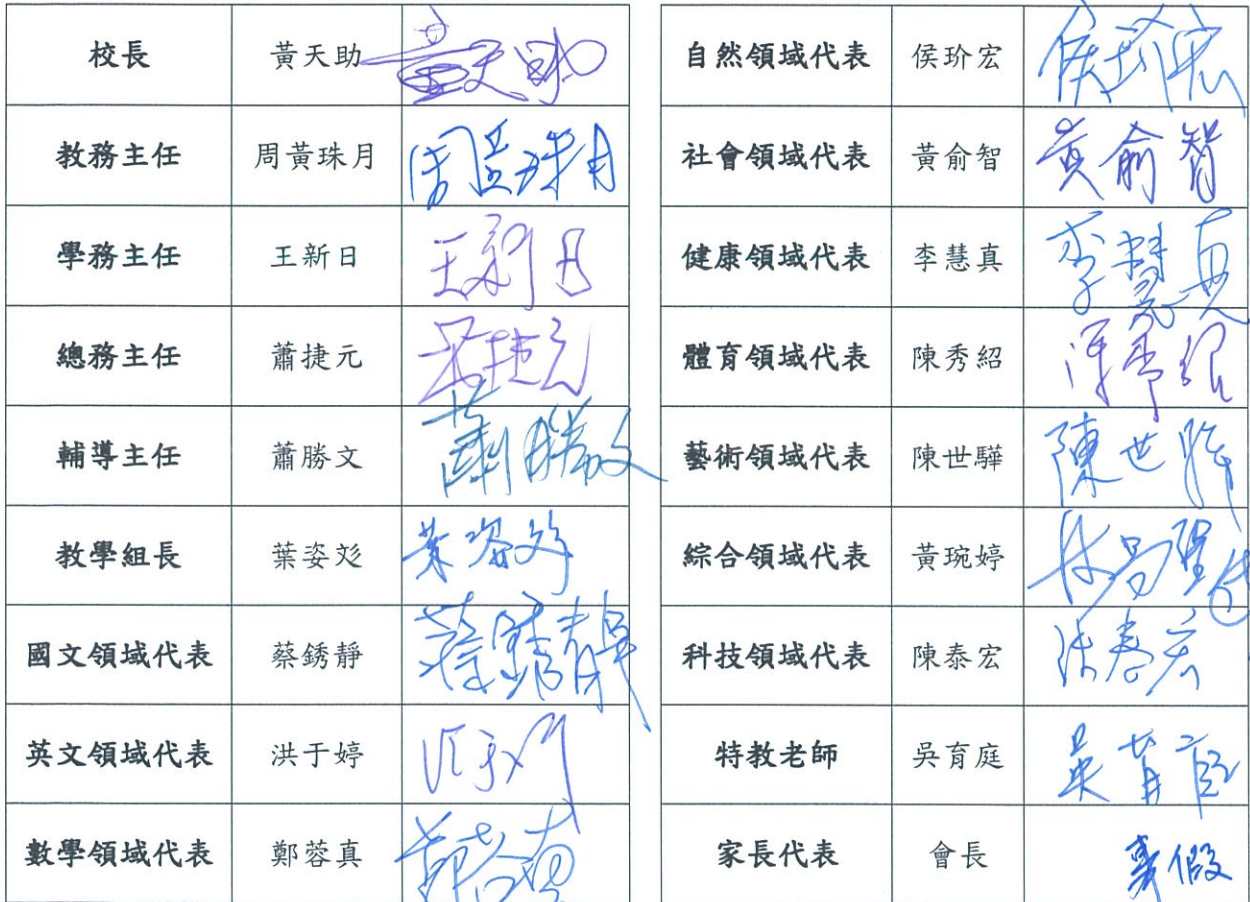 校長 黃天助 黃天助
教務主任 周黃珠月 周黃珠月
學務主任 王新日 王新日
總務主任 蕭捷元 捷元
輔導主任 蕭勝文 蕭勝文
教學組長 葉姿彣 葉姿彣
國文領域代表 蔡銹靜 蔡銹靜
英文領域代表 洪于婷
數學領域代表 鄭蓉真
自然領域代表 侯玠宏 侯玠宏
社會領域代表 黃俞智 黃俞智
健康領域代表 李慧真 李慧真
體育領域代表 陳秀紹 陳秀紹
藝術領域代表 陳世驊 陳世驊
綜合領域代表 黃琬婷
科技領域代表 陳泰宏 陳泰宏
特教老師 吳育庭 吳育庭
家長代表 會長 事假